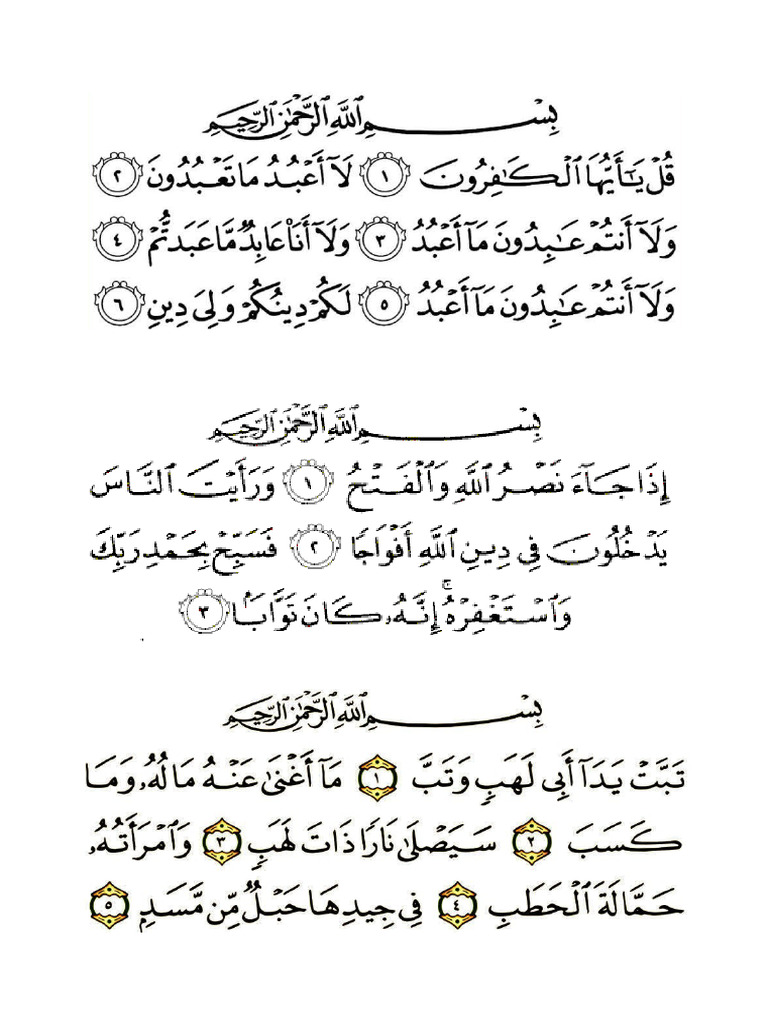 بِسْمِ ٱللَّهِ ٱلرَّحْمَٰنِ ٱلرَّحِيمِ
قُلْ يَٰٓأَيُّهَا ٱلْكَٰفِرُونَ ١ لَآ أَعْبُدُ مَا تَعْبُدُونَ ٢
وَلَآ أَنتُمْ عَٰبِدُونَ مَآ أَعْبُدُ ٣ وَلَآ أَنَا۠ عَابِدٌ مَّا عَبَدتُّمْ ٤
وَلَآ أَنتُمْ عَٰبِدُونَ مَآ أَعْبُدُ ٥ لَكُمْ دِينُكُمْ وَلِىَ دِينِ ٦
بِسْمِ ٱللَّهِ ٱلرَّحْمَٰنِ ٱلرَّحِيمِ
إِذَا جَآءَ نَصْرُ ٱللَّهِ وَٱلْفَتْحُ ١ وَرَأَيْتَ ٱلنَّاسَ
يَدْخُلُونَ فِى دِينِ ٱللَّهِ أَفْوَاجًا ٢ فَسَبِّحْ بِحَمْدِ رَبِّكَ
وَٱسْتَغْفِرْهُ ۚ إِنَّهُۥ كَانَ تَوَّابًۢا ٣
بِسْمِ ٱللَّهِ ٱلرَّحْمَٰنِ ٱلرَّحِيمِ
تَبَّتْ يَدَآ أَبِى لَهَبٍ وَتَبَّ ١ مَآ أَغْنَىٰ عَنْهُ مَالُهُۥ وَمَا
كَسَبَ ٢ سَيَصْلَىٰ نَارًا ذَاتَ لَهَبٍ ٣ وَٱمْرَأَتُهُۥ
حَمَّالَةَ ٱلْحَطَبِ ٤ فِى جِيدِهَا حَبْلٌ مِّن مَّسَدٍۭ ٥